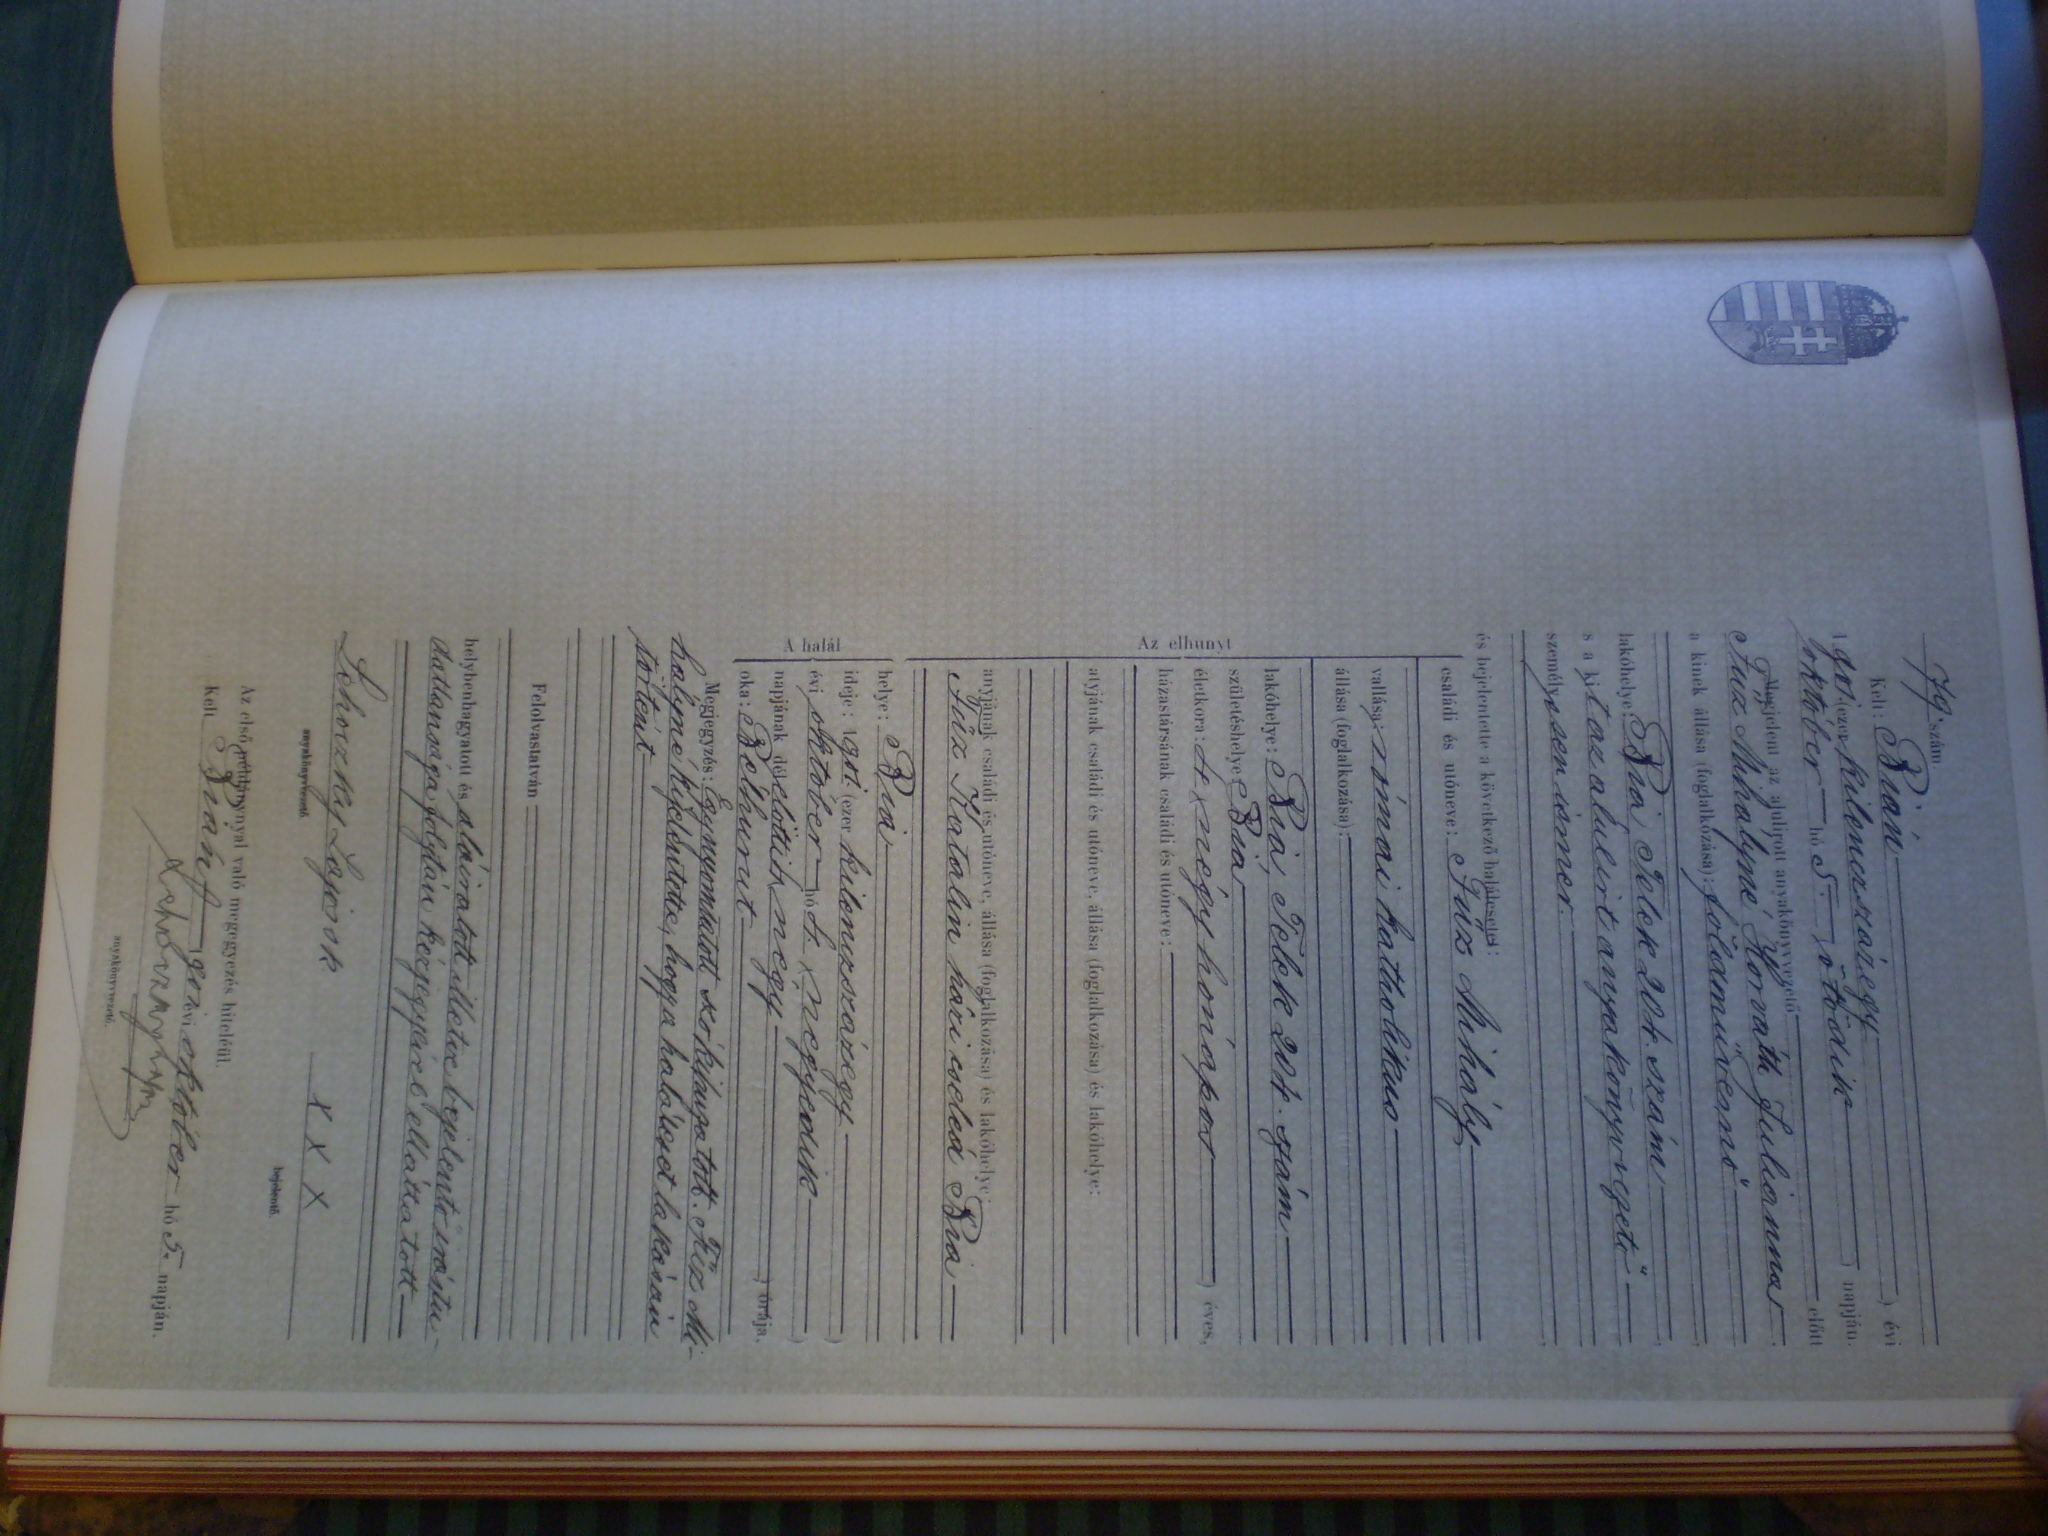 79 szám
Kelt: Bián ) évi
1901 (ezer kilencszázegy
október hó 5. (ötödik ) napján.
Megjelent az alulirott anyakönyvvezető előtt
Füzz Mihályné Horváth Julianna
a kinek állása (foglalkozása): földmüvesnő
lakóhelye: Bia, Telek 204. szám,
s a kit az alulirt anyakönyvvezető
személyesen ismer.
és bejelentette a következő halálesetet:
családi és utóneve: Füz Mihály
vallása: római katholikus
állása (foglalkozása):
Az elhunyt
lakóhelye: Bia, Telek 204. szám
születéshelye: Bia
életkora: 4 (négy hónapos ) éves,
házastársának családi és utóneve:
atyjának családi és utóneve, állása (foglalkozása) és lakóhelye:
anyjának családi és utóneve, állása (foglalkozása) és lakóhelye:
Füz Katalin házi cseléd Bia
A halál
helye: Bia
ideje: 1901. (ezer kilenczszázegy )
évi október hó 4. (negyedik )
napjának délelőtti negy ) órája.
oka: Bélhurut
Megjegyzés: Egy nyomtatott szó kijavíttatott. Füz Mi-
hályné kijelentette, hogy a haláleset lakásán
történt
Felolvastatván
helybenhagyatott és aláiratott illetve bejelentő irástu-
datlansága folytán kézjegyével elláttatott
Lehoczky Lajos sk
anyakönyvvezető.
x x x
bejelentő.
Az első példánynyal való megegyezés hiteléül.
Kelt Bián 1901 évi október hó 5. napján.
anyakönyvvezető.